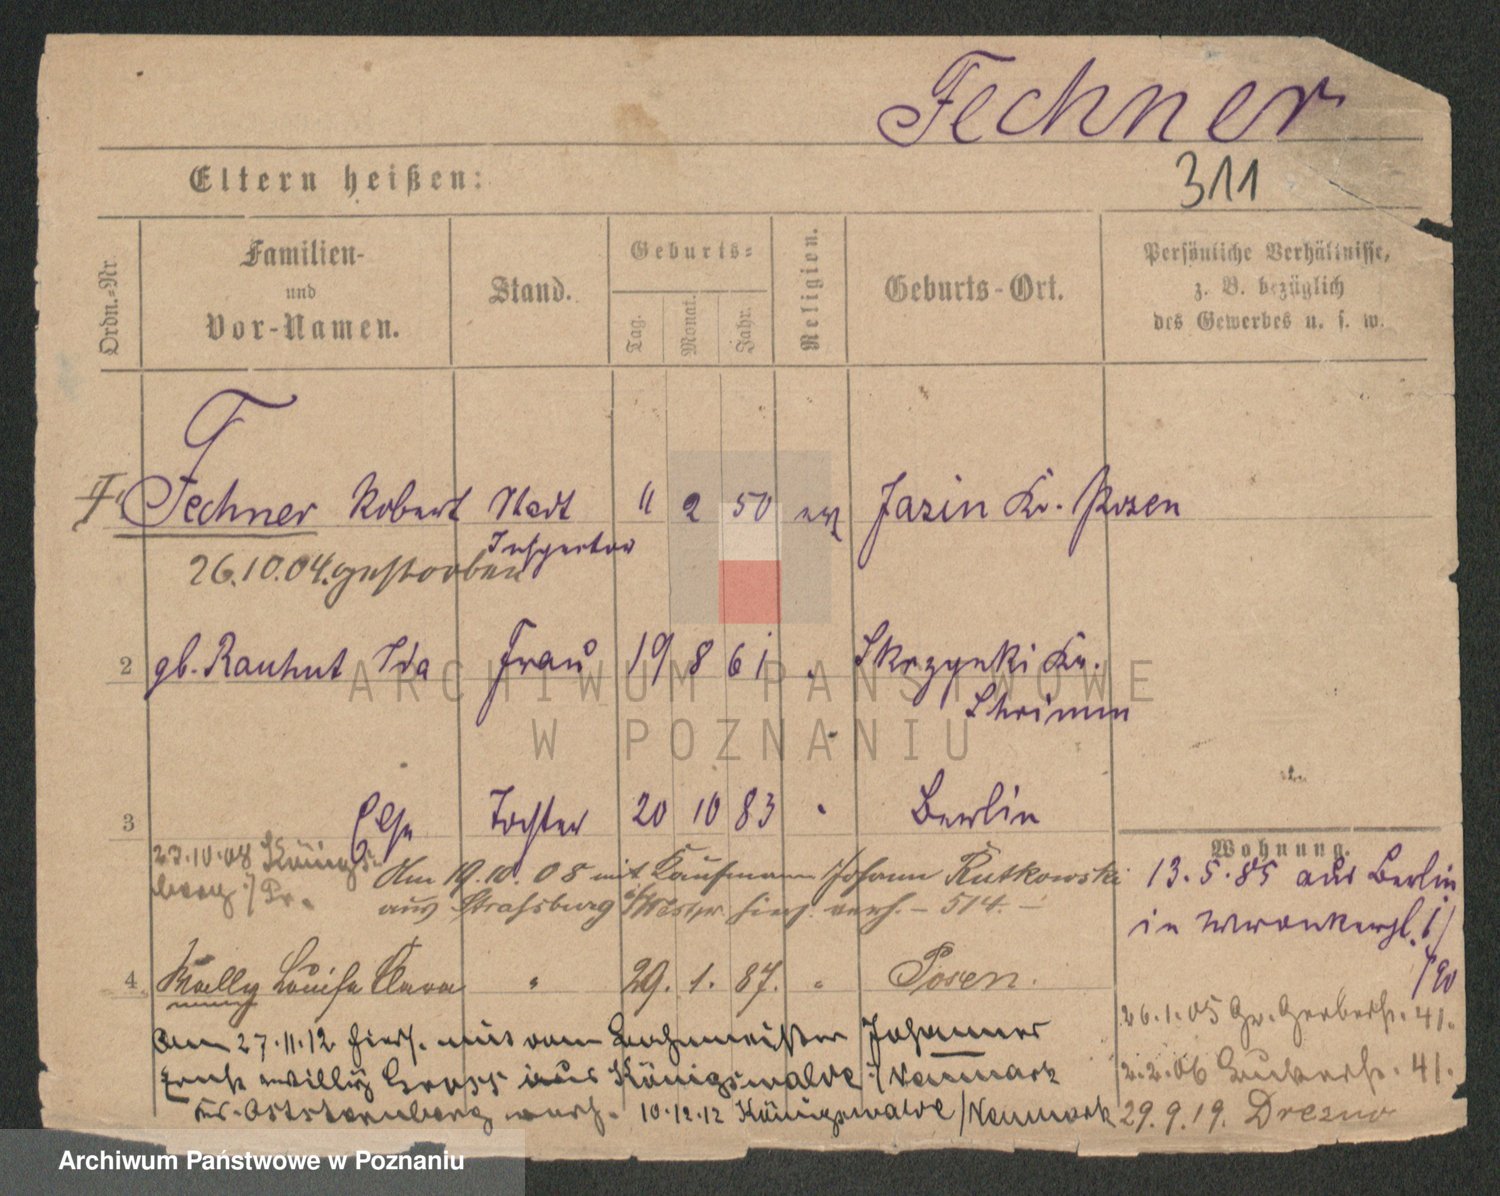 Fechner
311
Eltern heißen:
Ordn.-Nr.
Familien-
und
Vor-Namen.
Stand.
Geburts-
Tag.
Monat.
Jahr.
Religion.
Geburts-Ort.
Persönliche Verhältnisse,
z. B. bezüglich
des Gewerbes u. s. w.
Fechner Robert Stadt " 2 50 ev Jasin Kr. Posen
Inspector
26.10.04. gestorben
2 gb. Rauhut Ida Frau 19 8 61 Skrzynki Kr.
Schrimm
3 Else Tochter 20 10 83 " Berlin
Wohnung.
23.10.08 Königs-
berg /Pr.
Am 19.10.08 mit Kaufmann Johann Rutkowski
aus Strasburg /Westpr. hier verh. – 514. –
13.5.85 aus Berlin
in Wronkerpl. 1/
/90
4 Wally Louise Clara " 29. 1. 87. " Posen.
26.1.05 Gr. Gerberst. 41.
Am 27.11.12 hier mit dem Johannes
Willy Gross aus Königswalde /Neumark
2.2.06 41.
Kr. Oststernberg verh. 10.12.12 Königswalde /Neumark
29.9.19. Drezno
ARCHIWUM PAŃSTWOWE
W POZNANIU
Archiwum Państwowe w Poznaniu